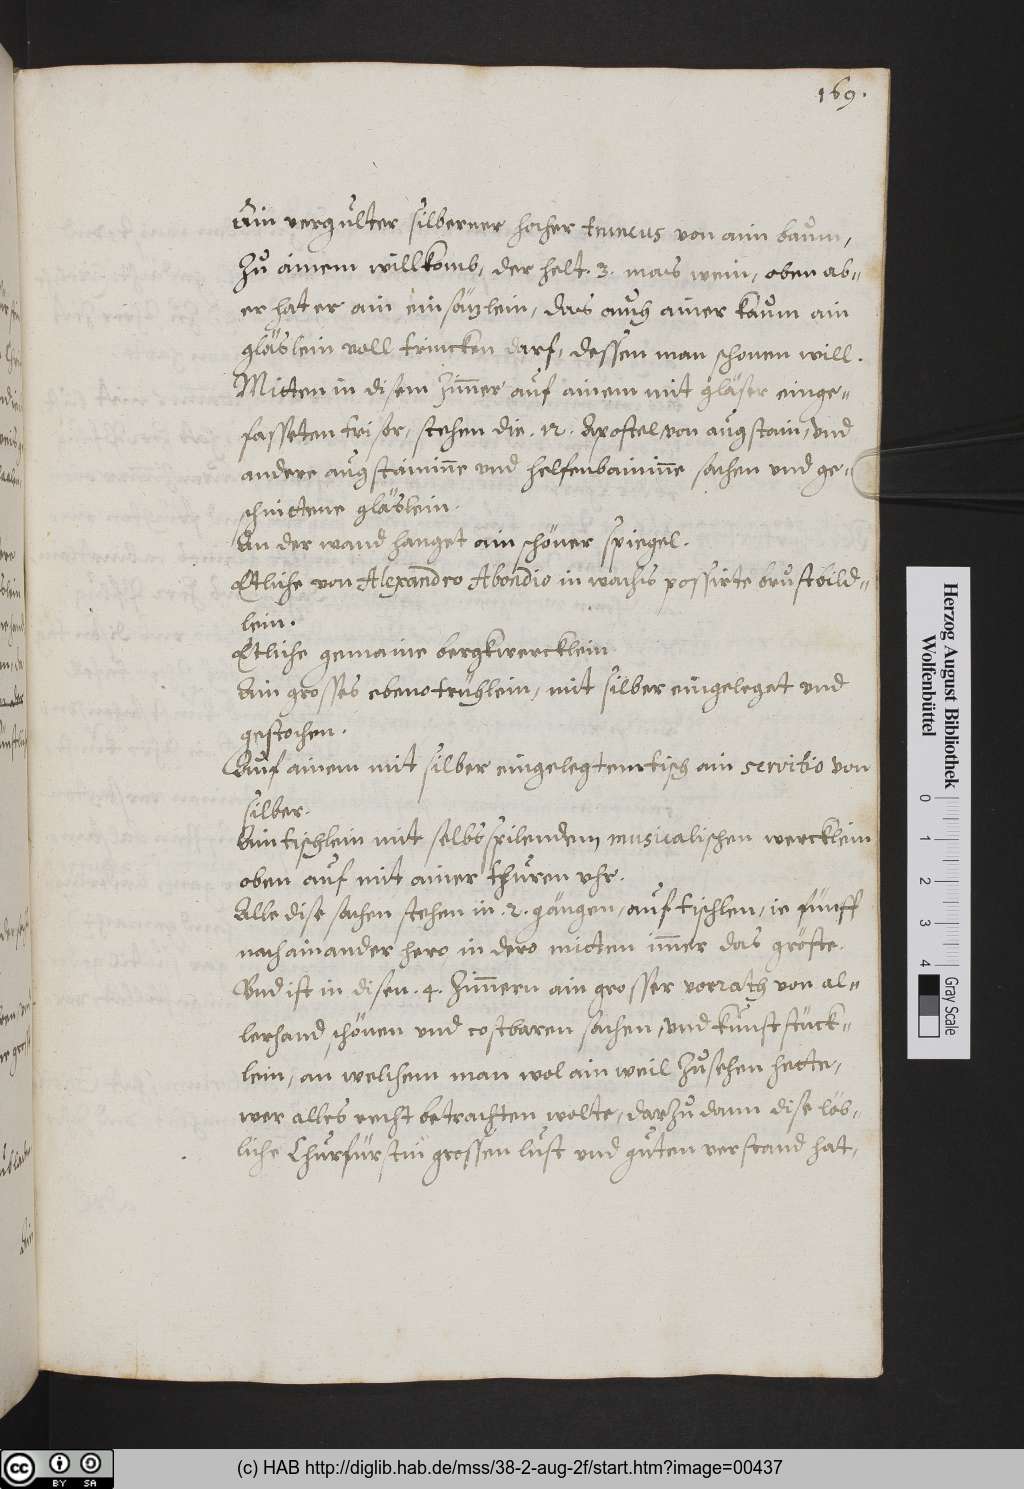 169.
Ain vergulter silberner hocher truncus von aim baum,
zu ainem willkomb, der helt. 3. mas wein, oben ab-
er hat er ain einsäzlein, das auch ainer kaum ain
gläslein voll trincken darf, dessen man schonen will.
Mitten in disem zimer auf ainem mit gläser einge-
fasseten trisor, stehen die. 12. Apostel, von augstain, und
andere augstaininne und helfenbaininne sachen und ge-
schnittene gläslein.
An der wand hanget ain schöner spiegel.
Etliche von Alexandro Abondio in wachs possirte brustbild-
lein.
Etliche gemaine bergkwercklein.
Ain grosses ebeno trühlein, mit silber eingeleget und
gestochen.
Auf ainem mit silber eingelegtem tisch ain servitio von
silber.
Ain tischlein mit selbs spilendem musicalischen wercklein
oben auf mit ainer thuren uhr.
Alle dise sachen stehen in. 2. gängen, auf tischlen, ie fünff
nach ainander hero, in dero mitten imer das gröste.
Und ist in disen. 4. Zimern ain grosser vorrath von al-
lerhand schönen und costbaren sachen, und kunststück-
lein, an welchem man wol ain weil zusehen hette,
wer alles recht betrachten wolte, darzu dann dise löb-
liche Churfürstin grossen lust und guten verstand hat,
Herzog August Bibliothek
Wolfenbüttel
0 1 2 3 4
Gray Scale
cc BY SA
(c) HAB http://diglib.hab.de/mss/38-2-aug-2f/start.htm?image=00437